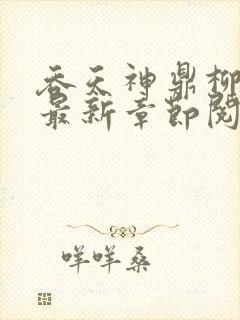 吞天神鼎柳
最新章节阅
咩咩桑